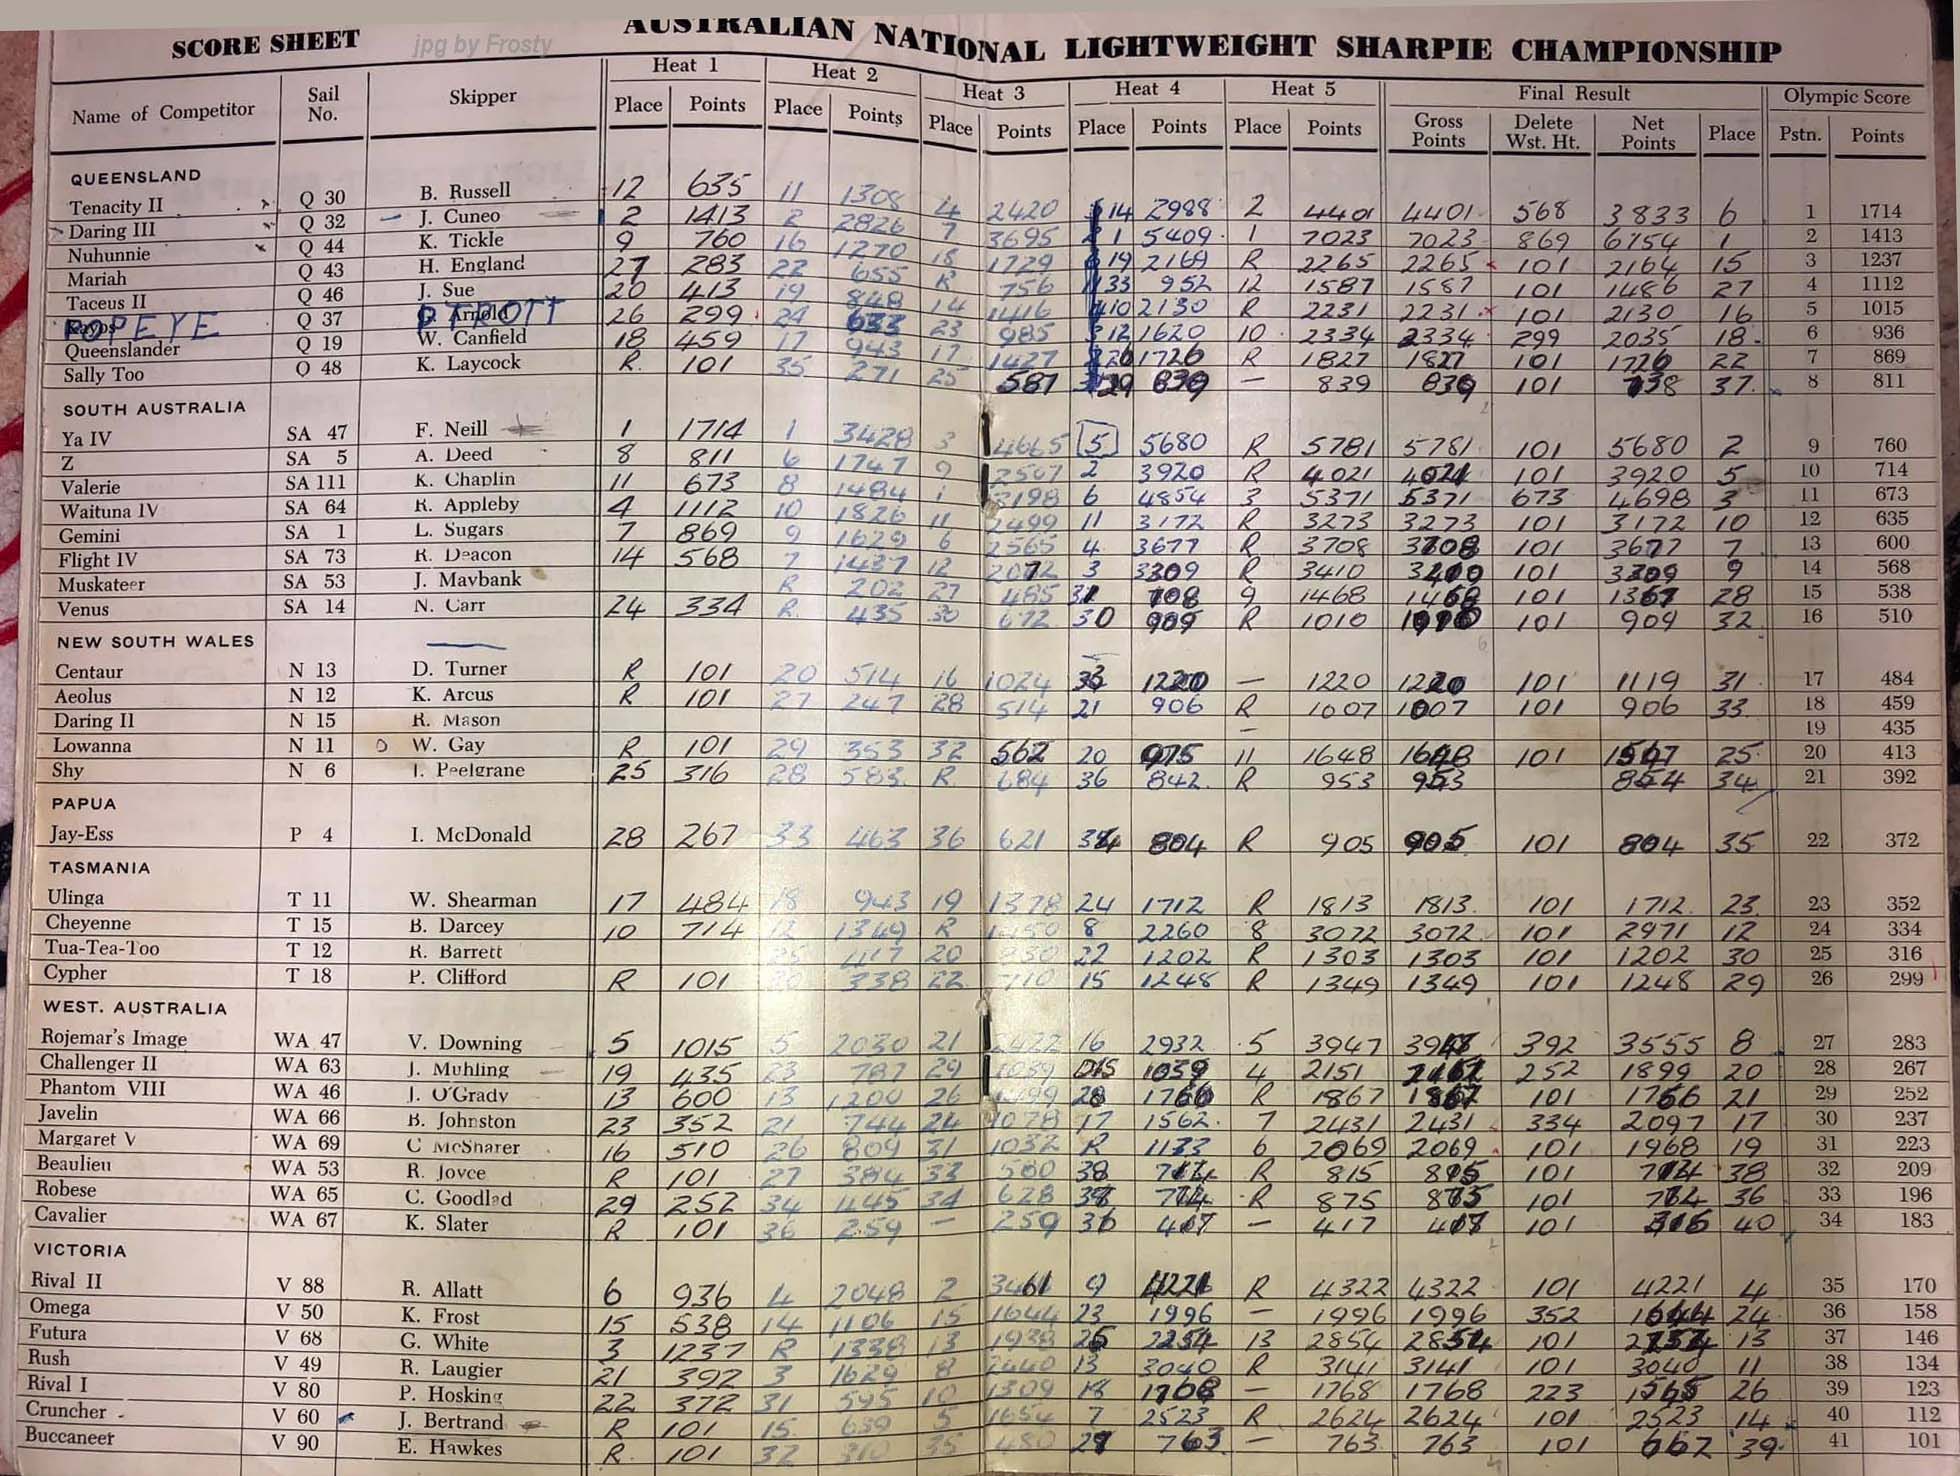 SCORE SHEET jpg by Frosty AUSTRALIAN NATIONAL LIGHTWEIGHT SHARPIE CHAMPIONSHIP
Heat 1 Heat 2 Heat 3 Heat 4 Heat 5 Final Result Olympic Score
Name of Competitor Sail No. Skipper Place Points Place Points Place Points Place Points Place Points Gross Points Delete Wst. Ht. Net Points Place Pstn. Points
QUEENSLAND
Tenacity II Q 30 B. Russell 12 635 11 1308 4 2420 14 2988 2 4401 4401 568 3833 6 1 1714
Daring III Q 32 J. Cuneo 2 1413 2 2826 7 3695 1 5409 1 7023 7023 869 6154 1 2 1413
Nuhunnie Q 44 K. Tickle 9 760 16 1270 18 1729 19 2164 R 2265 2265 101 2164 15 3 1237
Mariah Q 43 H. England 27 283 22 655 R 756 33 952 12 1587 1587 101 1486 27 4 1112
Taceus II Q 46 J. Sue 20 413 19 848 14 1416 10 2130 R 2231 2231 101 2130 16 5 1015
POPEYE Q 37 P TROTT 26 299 24 633 23 985 12 1620 10 2334 2334 299 2035 18 6 936
Queenslander Q 19 W. Canfield 18 459 17 943 17 1427 1726 R 1827 1827 101 1726 22 7 869
Sally Too Q 48 K. Laycock R 101 35 271 25 587 29 839 — 839 839 101 738 37 8 811
SOUTH AUSTRALIA
Ya IV SA 47 F. Neill 1 1714 1 3428 3 4665 5 5680 R 5781 5781 101 5680 2 9 760
Z SA 5 A. Deed 8 811 6 1747 9 2507 2 3920 R 4021 4021 101 3920 5 10 714
Valerie SA 111 K. Chaplin 11 673 8 1484 1 3198 6 4854 3 5371 5371 673 4698 3 11 673
Waituna IV SA 64 R. Appleby 4 1112 10 1826 11 2499 11 3172 R 3273 3273 101 3172 10 12 635
Gemini SA 1 L. Sugars 7 869 9 1629 6 2565 4 3677 R 3708 3708 101 3677 7 13 600
Flight IV SA 73 R. Deacon 14 568 7 1437 12 2072 3 3309 R 3410 3410 101 3309 9 14 568
Muskateer SA 53 J. Maybank R 202 27 485 31 708 9 1468 1468 101 1367 28 15 538
Venus SA 14 N. Carr 24 334 R 435 30 672 30 909 R 1010 1010 101 909 32 16 510
NEW SOUTH WALES
Centaur N 13 D. Turner R 101 20 514 16 1024 1220 — 1220 1220 101 1119 31 17 484
Aeolus N 12 K. Arcus R 101 27 247 28 514 21 906 R 1007 1007 101 906 33 18 459
Daring II N 15 R. Mason — 19 435
Lowanna N 11 W. Gay R 101 29 353 32 562 20 975 11 1648 1648 101 1547 25 20 413
Shy N 6 I. Peelgrane 25 316 28 583 R 684 36 842 R 953 953 854 34 21 392
PAPUA
Jay-Ess P 4 I. McDonald 28 267 33 463 36 621 34 804 R 905 905 101 804 35 22 372
TASMANIA
Ulinga T 11 W. Shearman 17 484 18 943 19 1378 24 1712 R 1813 1813 101 1712 23 23 352
Cheyenne T 15 B. Darcey 10 714 12 1349 R 1450 8 2260 8 3072 3072 101 2971 12 24 334
Tua-Tea-Too T 12 R. Barrett 25 417 20 830 22 1202 R 1303 1303 101 1202 30 25 316
Cypher T 18 P. Clifford R 101 338 22 710 15 1248 R 1349 1349 101 1248 29 26 299
WEST. AUSTRALIA
Rojemar's Image WA 47 V. Downing 5 1015 5 2030 21 2422 16 2932 5 3947 3947 392 3555 8 27 283
Challenger II WA 63 J. Muhling 19 435 23 787 29 1039 DIS 1039 4 2151 252 1899 20 28 267
Phantom VIII WA 46 J. O'Grady 13 600 13 1200 26 1499 28 1766 R 1867 1867 101 1766 21 29 252
Javelin WA 66 B. Johnston 23 352 21 744 24 1078 17 1562 7 2431 2431 334 2097 17 30 237
Margaret V WA 69 C McSharer 16 510 26 809 31 1032 R 1133 6 2069 2069 101 1968 19 31 223
Beaulieu WA 53 R. Joyce R 101 27 384 33 580 38 714 R 815 815 101 714 38 32 209
Robese WA 65 C. Goodlad 29 252 34 445 34 628 774 R 875 875 101 36 33 196
Cavalier WA 67 K. Slater R 101 36 259 — 259 36 417 — 417 417 101 316 40 34 183
VICTORIA
Rival II V 88 R. Allatt 6 936 4 2048 2 3461 9 4221 R 4322 4322 101 4221 4 35 170
Omega V 50 K. Frost 15 538 14 1106 15 1644 23 1996 — 1996 1996 352 1644 24 36 158
Futura V 68 G. White 3 1237 R 1338 13 1938 2254 13 2854 2854 101 13 37 146
Rush V 49 R. Laugier 21 392 3 1629 8 2440 13 3040 R 3141 3141 101 3040 11 38 134
Rival I V 80 P. Hosking 22 372 31 595 10 1309 18 1768 — 1768 1768 223 1545 26 39 123
Cruncher V 60 J. Bertrand R 101 15 639 5 1654 7 2523 R 2624 2624 101 2523 14 40 112
Buccaneer V 90 E. Hawkes R 101 32 310 35 480 763 — 763 763 101 662 39 41 101